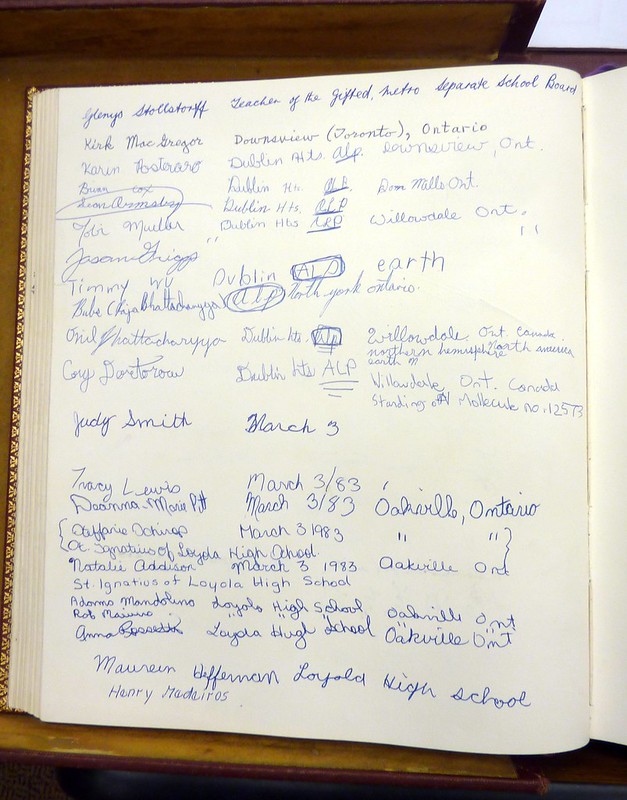 Glenys Stollstorff Teacher of the Gifted, Metro Separate School Board
Kirk MacGregor Downsview (Toronto), Ontario
Karin Posteraro Dublin Hts. alp. Downsview, Ont.
Brian Cox Dublin Hts. ALP. Don Mills Ont.
Sean Armstrong Dublin Hts. ALP
Tobi Mudler Dublin Hts ALP Willowdale Ont.
Jason Griggs " "
Timmy Wu Dublin ALP earth
Bube (Raja Bhattacharyya) alp North york ontario.
Onil Bhattacharyya Dublin hts. alp Willowdale. Ont. Canada.
northern hemisphere North america
earth
Cory Doctorow Dublin hts ALP Willowdale Ont. Canada
Standing on Molecule no. 12573
Judy Smith March 3
Tracy Lewis March 3/83 "
Deanna-Marie Pitt March 3/83 Oakville, Ontario
{Staffanie Schirop March 3 1983 " "}
{St. Ignatius of Loyola High School.
Natalie Addison March 3 1983 Oakville Ont
St. Ignatius of Loyola High School
Adonno Mandolino Loyola High School Oakville Ont
Rob " " " " "
Anna Loyola High School Oakville Ont
Maureen Heffernan Loyola High School
Henry Medeiros